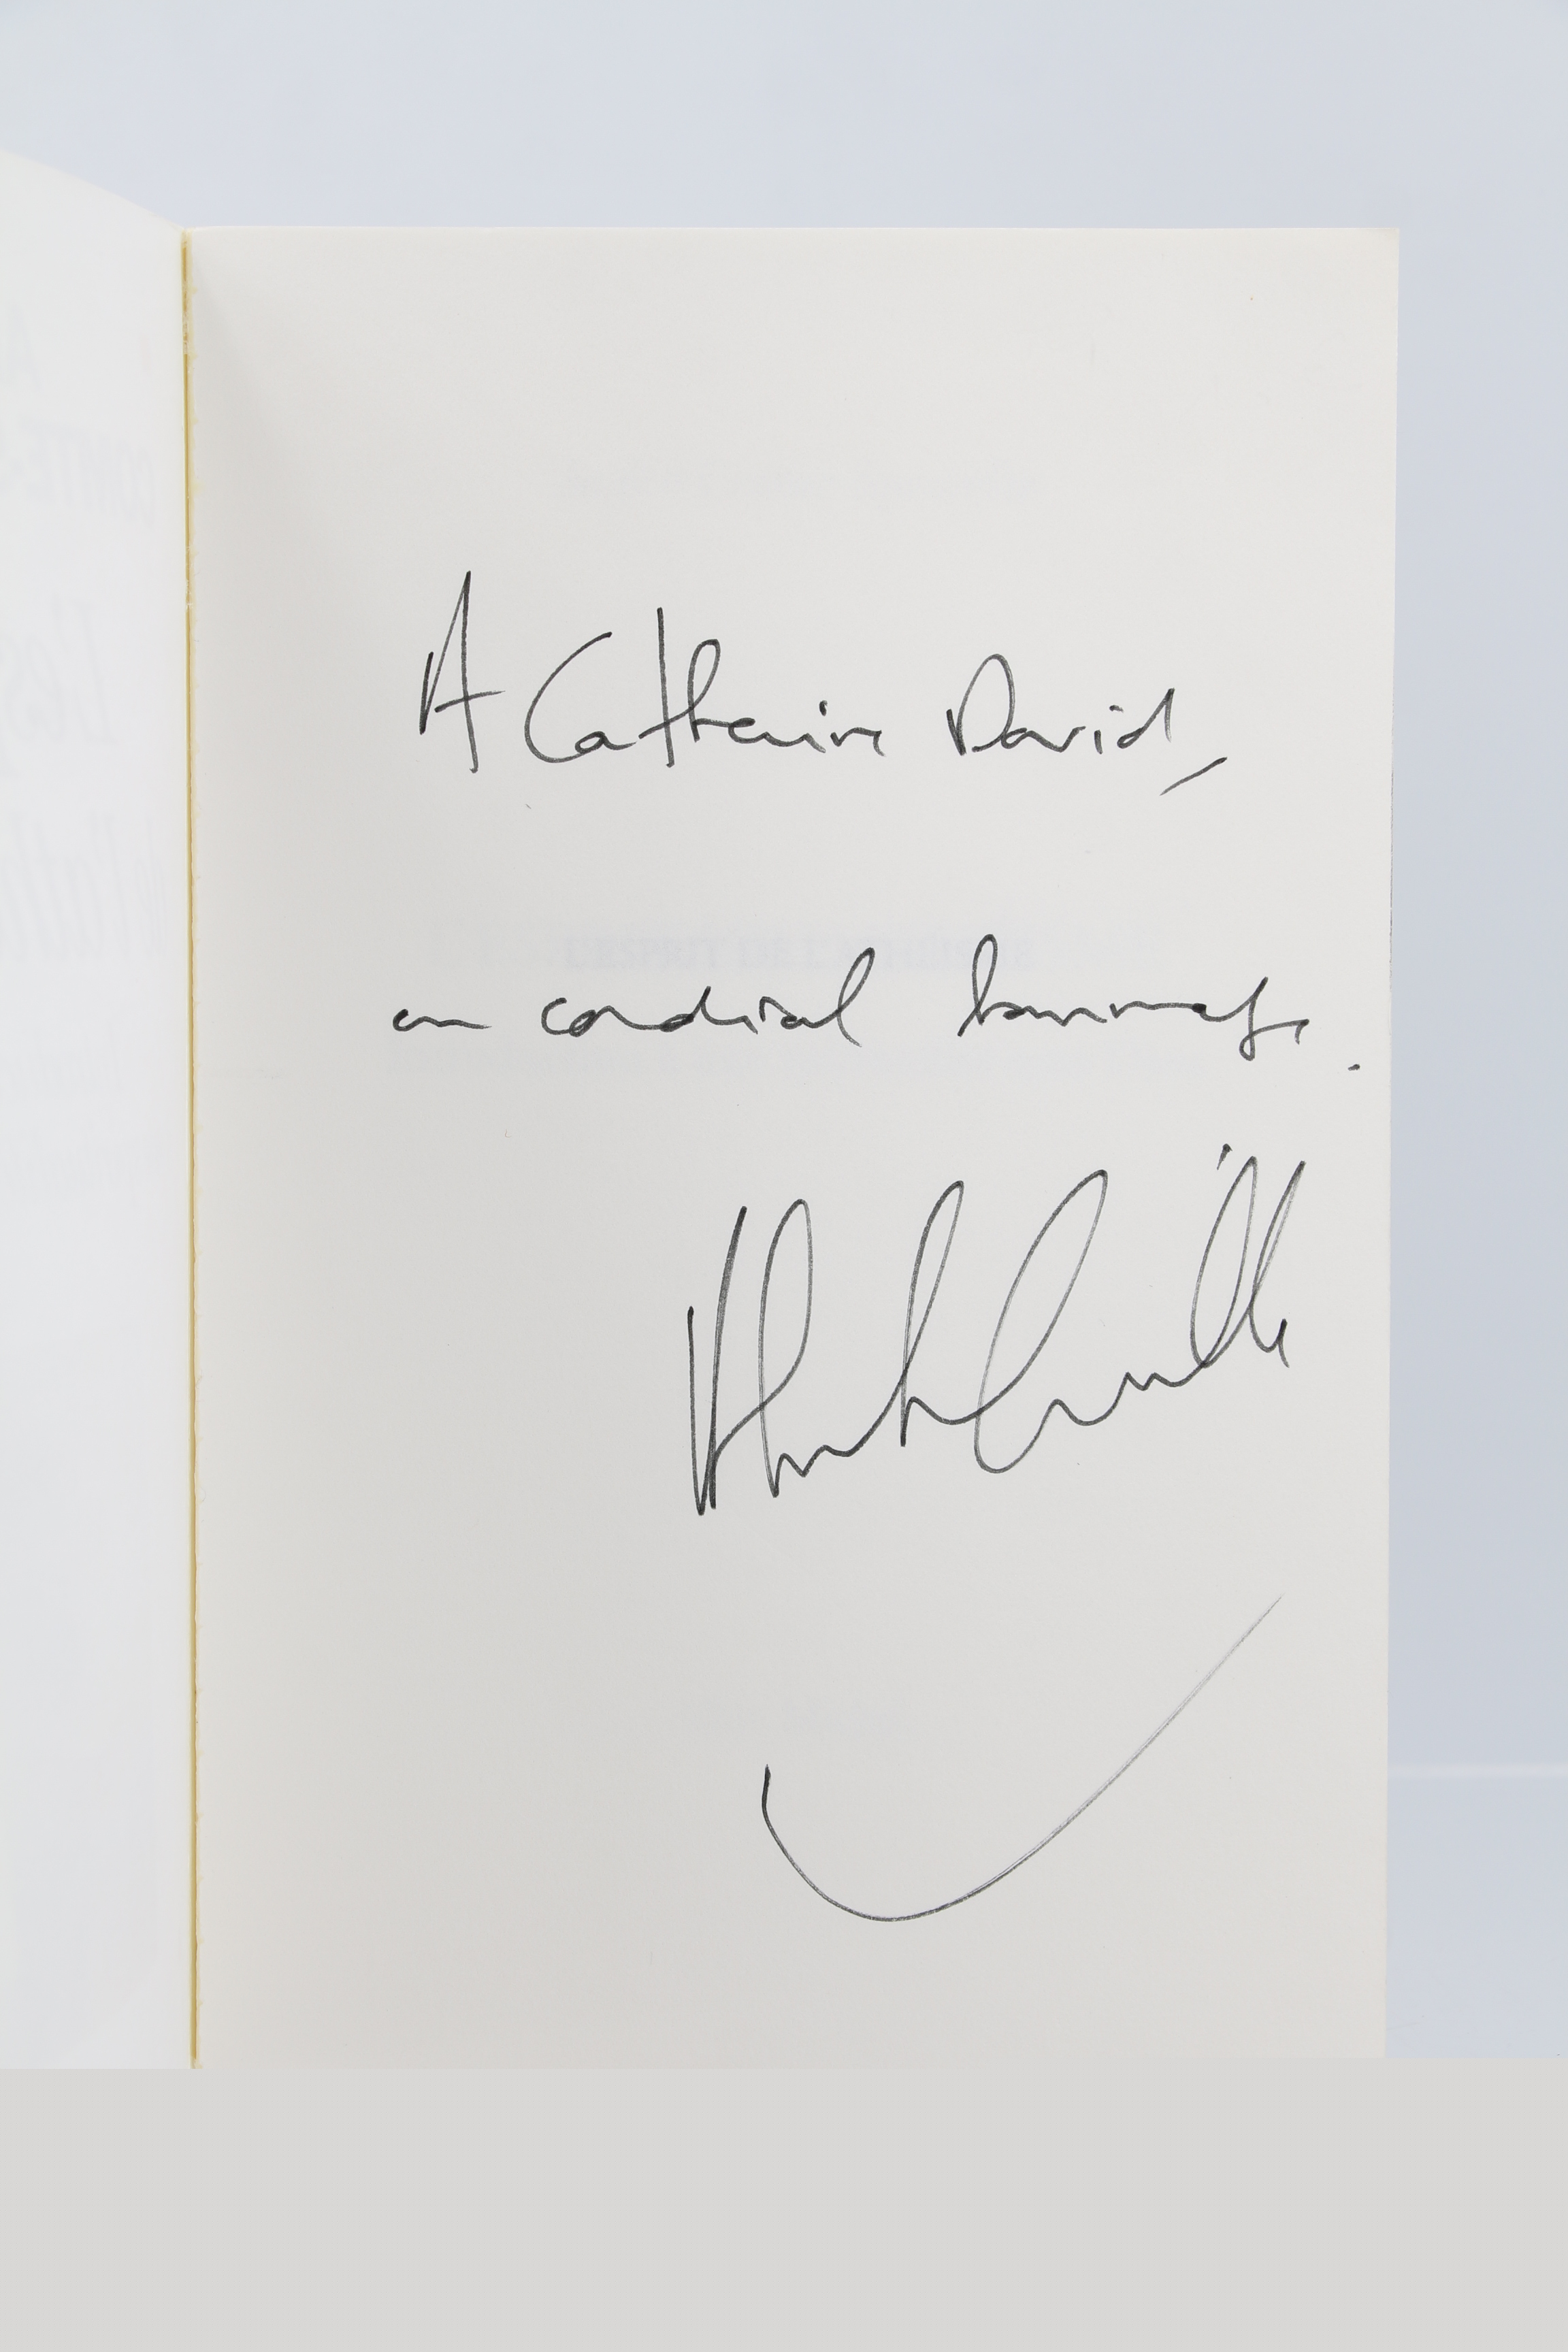 A Catherine David,
en cordial hommage.
L'ESPRIT DE L'ATHÉISME